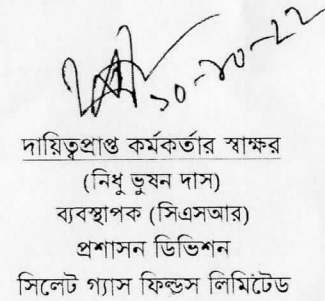 ১০-১০-২২
দায়িত্বপ্রাপ্ত কর্মকর্তার স্বাক্ষর
(নিধু ভুষন দাস)
ব্যবস্থাপক (সিএসআর)
প্রশাসন ডিভিশন
সিলেট গ্যাস ফিল্ডস লিমিটেড